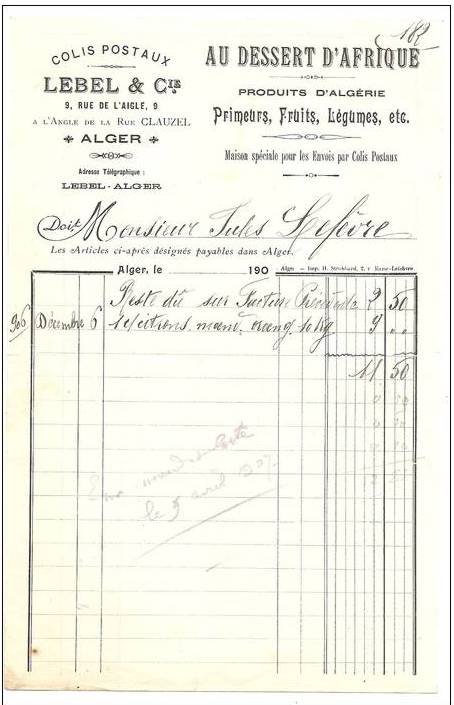 182
COLIS POSTAUX
LEBEL & CIE
9, RUE DE L'AIGLE, 9
A L'ANGLE DE LA RUE CLAUZEL
ALGER
Adresse Télégraphique :
LEBEL-ALGER
AU DESSERT D'AFRIQUE
PRODUITS D'ALGÉRIE
Primeurs, Fruits, Légumes, etc.
Maison spéciale pour les Envois par Colis Postaux
Doit Monsieur Jules Lefèvre
Les Articles ci-après désignés payables dans Alger.
Alger, le 190
Alger — Imp. H.
Reste dû sur Facture Précédente 2 50
906 Décembre 6 mand. orang. 10 Kg 9 " "
11 50
le 5 avril 907